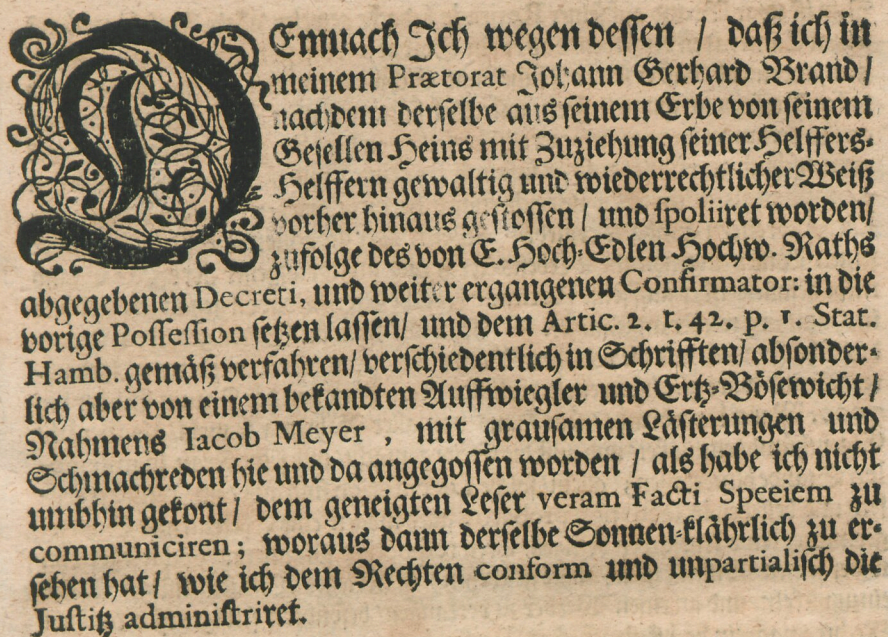 DEmnach Ich wegen dessen / daß ich in
meinem Prætorat Johann Gerhard Brand /
nachdem derselbe aus seinem Erbe von seinem
Gesellen Heins mit Zuziehung seiner Helffers-
Helffern gewaltig und wiederrechtlicher Weiß
vorher hinaus gestossen / und spoliiret worden /
zufolge des von E. Hoch-Edlen Hochw. Raths
abgegebenen Decreti, und weiter ergangenen Confirmator: in die
vorige Possession setzen lassen / und dem Artic. 2. t. 42. p. 1. Stat.
Hamb. gemäß verfahren / verschiedentlich in Schrifften / absonder-
lich aber von einem bekandten Auffwiegler und Ertz-Bösewicht /
Nahmens Iacob Meyer , mit grausamen Lästerungen und
Schmachreden hie und da angegossen worden / als habe ich nicht
umbhin gekont / dem geneigten Leser veram Facti Speeiem zu
communiciren ; woraus dann derselbe Sonnen-klährlich zu er-
sehen hat / wie ich dem Rechten conform und unpartialisch die
Justitz administriret.